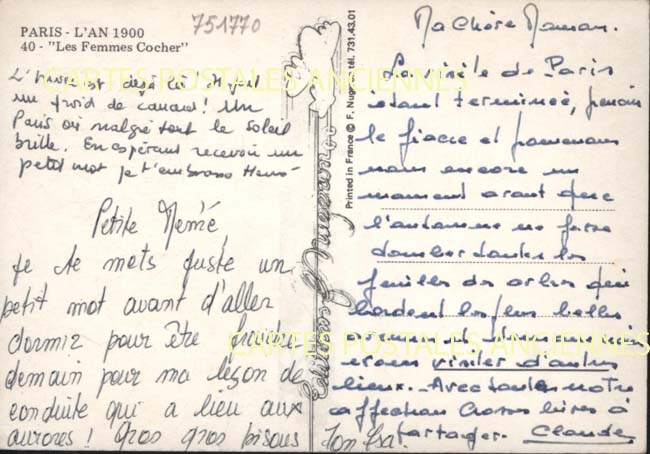 PARIS - L'AN 1900
40 - "Les Femmes Cocher"
751770
L'hiver est déjà là Il fait
un froid de canard! Un
Paris où malgré tout le soleil
brille. En espérant recevoir un
petit mot je t'embrasse
Petite Mémé,
Je te mets juste un
petit mot avant d'aller
dormir pour être fraîche
demain pour ma leçon de
conduite qui a lieu aux
aurores! Gros gros bisous
Ton Isa.
Printed in France © F. Nugeron tél. 731.43.01
Editions F. Nugeron
Ma Chère Maman.
La visite de Paris
étant terminée, prenons
le fiacre et promenons
nous encore un
moment avant que
l'automne ne fasse
tomber toutes les
feuilles des arbres qui
bordent les plus belles
visiter d'autres
lieux. Avec toute notre
affection Grosses bises à
partager. Claude
CARTES POSTALES ANCIENNES
CARTES POSTALES ANCIENNES